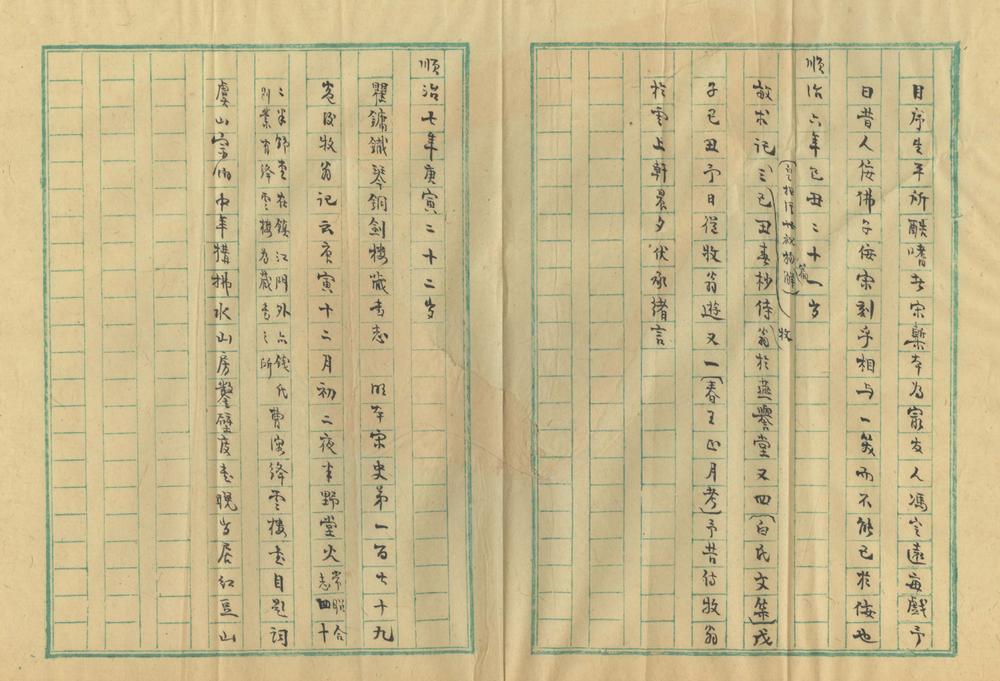 目序生平所酷嗜者宋槧本為最友人馮定遠每戲予
曰昔人佞佛子佞宋刻乎相與一笑而不能已於佞也
順治六年己丑二十一歲
敏求記(三)己丑春杪侍牧翁於燕譽堂又四(白氏文集)戊
子己丑予日從牧翁遊又一(春王正月考)予昔侍牧翁
於雲上軒晨夕伏承緒言
順治七年庚寅二十二歲
瞿鏞鐵琴銅劍樓藏書志 明本宋史第一百七十九
卷後牧翁記云庚寅十二月初二夜半野堂火常昭合志四十
二半野堂在鎮江門外六錢氏別業有絳雲樓為藏書之所 曹溶絳雲樓書目題詞
虞山宗伯中年構拂水山房鑿壁庋書晚尚居紅豆山